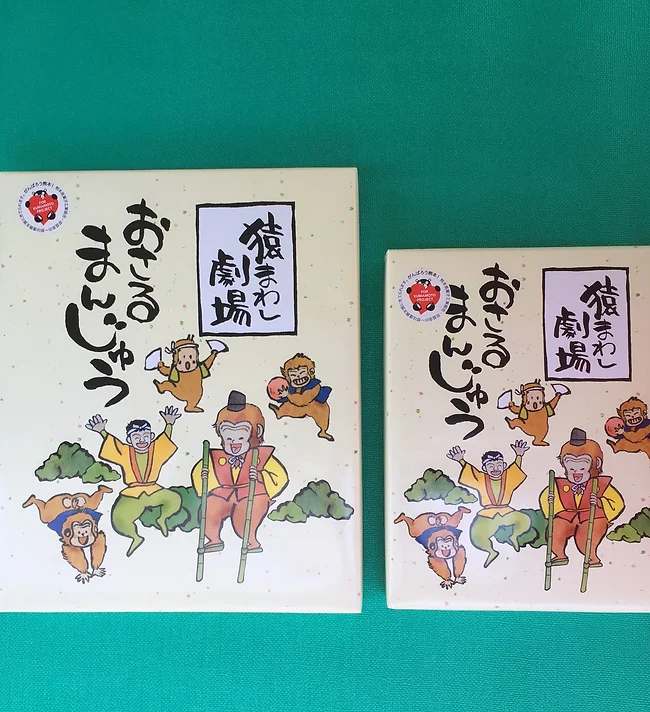 猿まわし
劇場
おさる
まんじゅう
FOR
KUMAMOTO
PROJECT
がんばろう熊本!
猿まわし
劇場
おさる
まんじゅう
FOR
KUMAMOTO
PROJECT
がんばろう熊本!